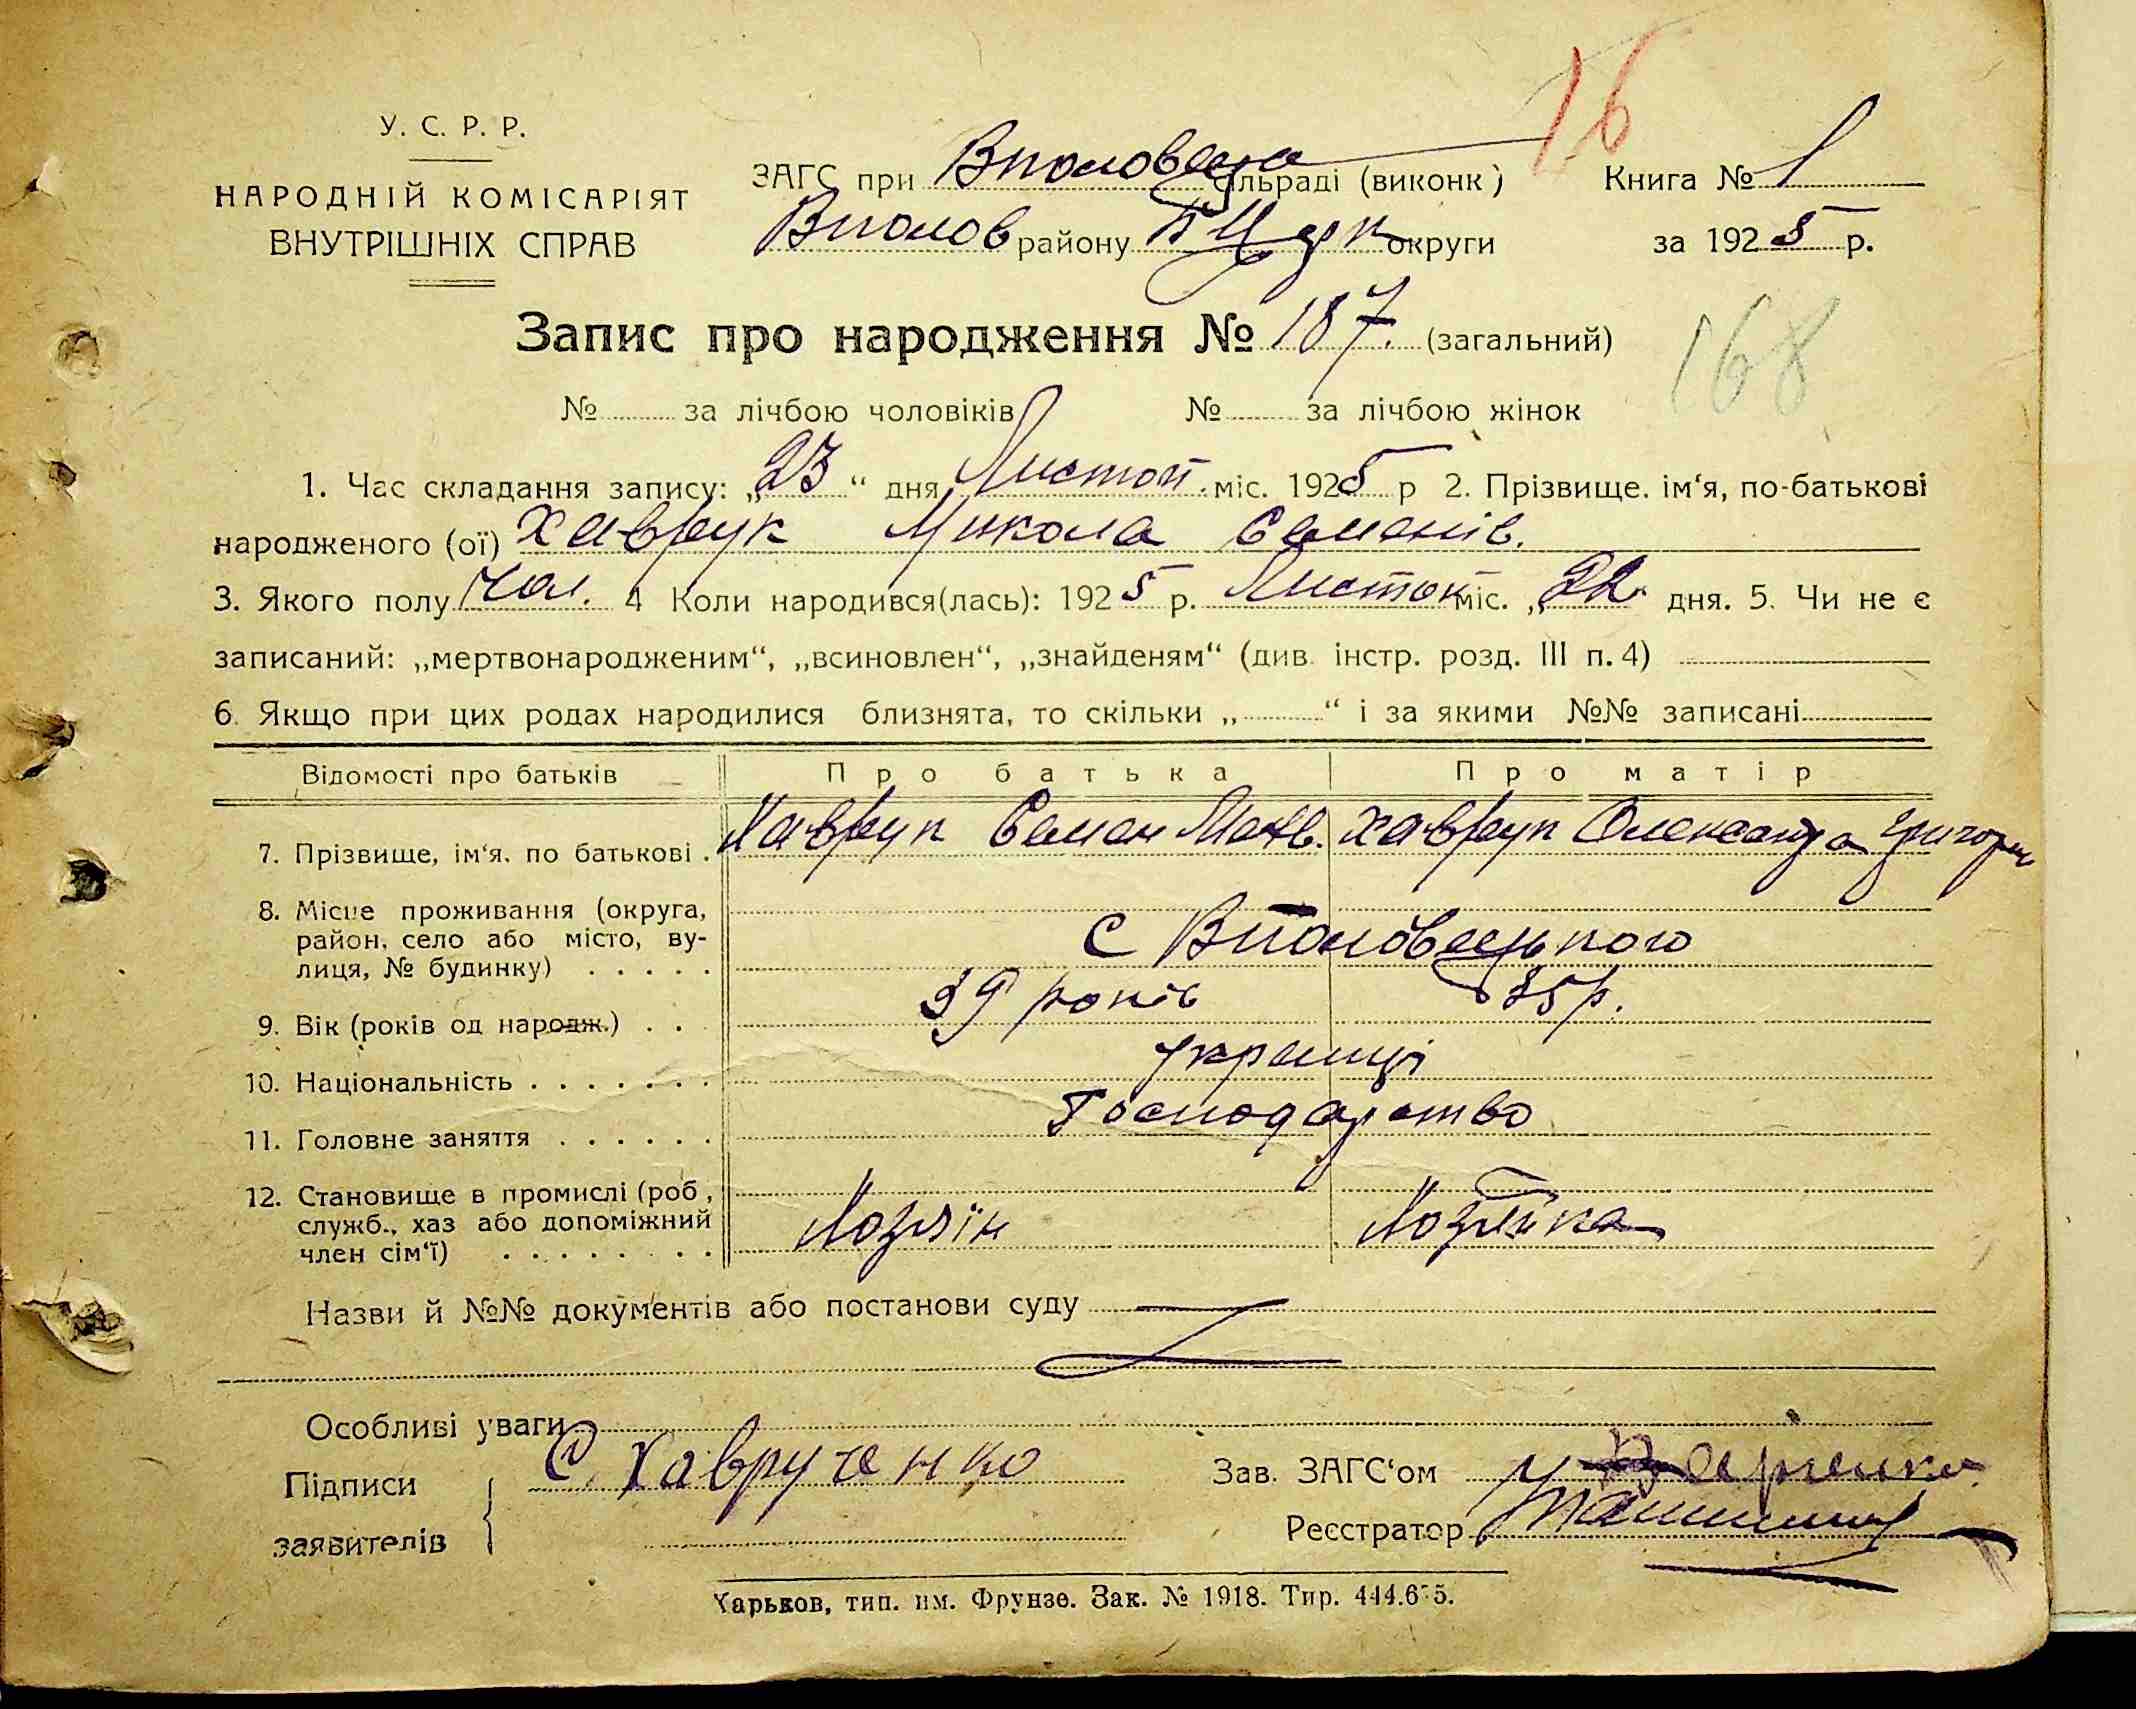 16
У. С. Р. Р.
НАРОДНІЙ КОМІСАРІЯТ
ВНУТРІШНІХ СПРАВ
ЗАГС при Вполовецька сільраді (виконк)
Вполов району БЦерк округи
Книга № 1
за 1925 р.
Запис про народження № 187. (загальний)
168
№ за лічбою чоловіків № за лічбою жінок
1. Час складання запису: „23“ дня Листоп. міс. 1925 р 2. Прізвище. ім‘я, по-батькові
народженого (ої) Хаврук Микола Семенів.
3. Якого полу Чол. 4 Коли народився(лась): 1925 р. Листоп міс. „22 дня. 5. Чи не є
записаний: „мертвонародженим“, „всиновлен“, „знайденям“ (див. інстр. розд. III п. 4)
6. Якщо при цих родах народилися близнята, то скільки „ “ і за якими №№ записані
Відомості про батьків Про батька Про матір
7. Прізвище, ім‘я. по батькові . Хаврук Семен Матв. Хаврук Олександра Григор
8. Місце проживання (округа,
район, село або місто, ву-
лиця, № будинку) . . . . . с Вполовецького
9. Вік (років од народж.) . . 39 років 35 р.
10. Національність . . . . . . . українці
11. Головне заняття . . . . . . Господарство
12. Становище в промислі (роб,
служб., хаз або допоміжний
член сім‘ї) . . . . . . . Хозяїн Хозяйка
Назви й №№ документів або постанови суду
Особливі уваги
Підписи
заявителів
С. Хаврученко
Зав. ЗАГС‘ом
Реєстратор
Харьков, тип. им. Фрунзе. Зак. № 1918. Тир. 444.675.